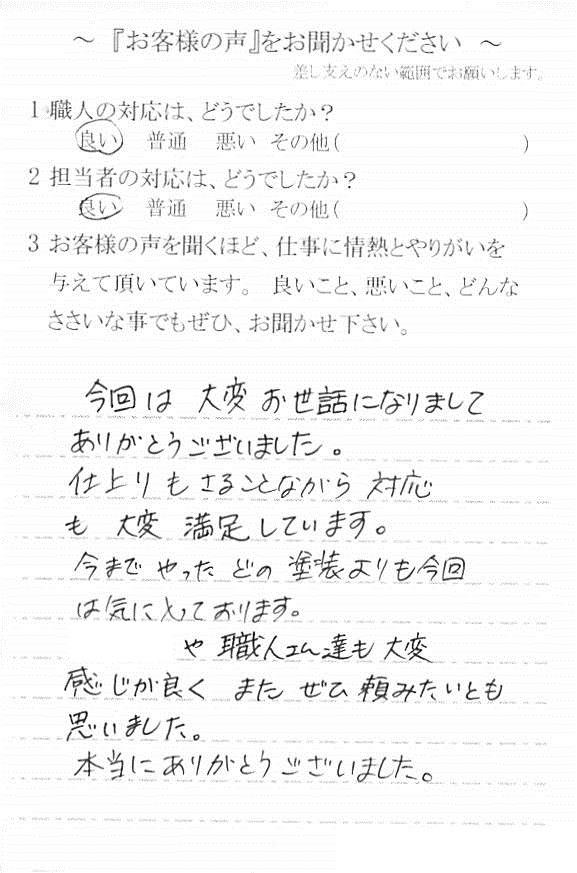 ～ 『お客様の声』をお聞かせください ～
差し支えのない範囲でお願いします。
1 職人の対応は、どうでしたか？
良い 普通 悪い その他( )
2 担当者の対応は、どうでしたか？
良い 普通 悪い その他( )
3 お客様の声を聞くほど、仕事に情熱とやりがいを
与えて頂いています。 良いこと、悪いこと、どんな
ささいな事でもぜひ、お聞かせ下さい。
今回は 大変 お世話になりまして
ありがとうございました。
仕上りもさることながら 対応
も 大変 満足しています。
今までやった どの 塗装よりも今回
は気に入っております。
や 職人さん達も 大変
感じが良く また ぜひ 頼みたいとも
思いました。
本当にありがとうございました。